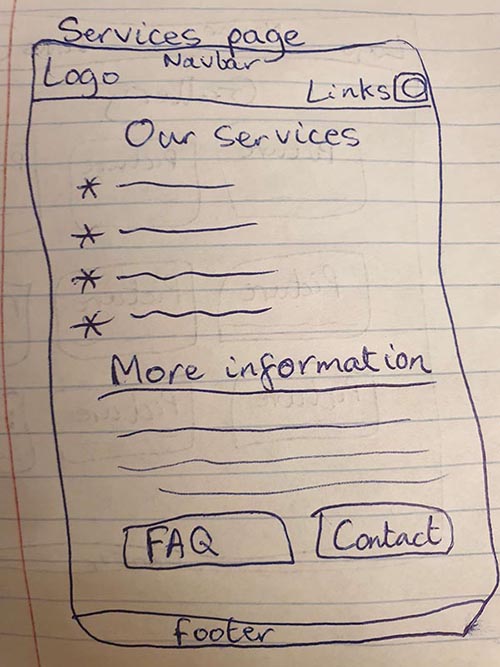 Services page
Navbar
Logo
Links
Our services
*
*
*
*
More information
FAQ
Contact
footer